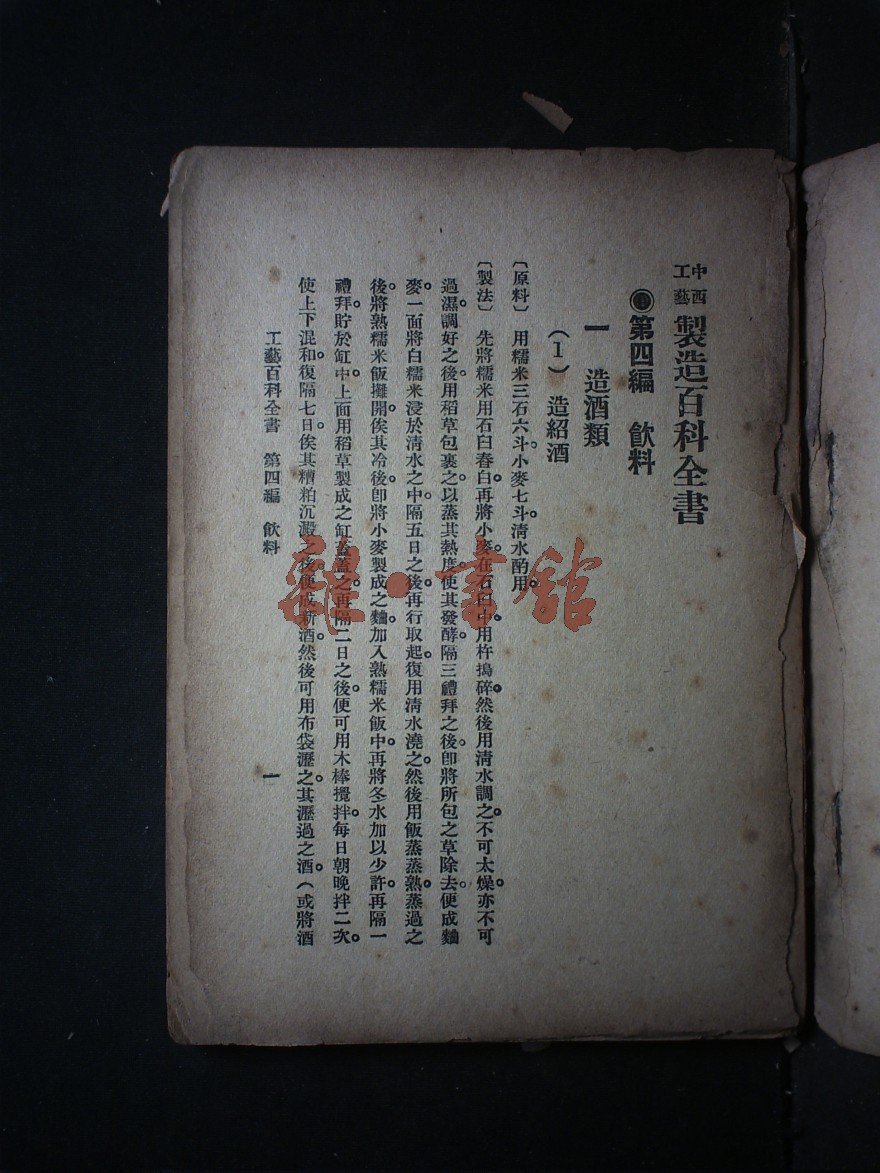 中西工藝 製造百科全書
第四編 飲料
一 造酒類
(1) 造紹酒
〔原料〕 用糯米三石六斗。小麥七斗。清水酌用。
〔製法〕 先將糯米用石臼舂白。再將小麥在石臼中用杵搗碎。然後用清水調之。不可太燥。亦不可
過濕。調好之後。用稻草包裹之。以蒸其熱度。使其發酵。隔三禮拜之後。卽將所包之草除去。便成麯
麥。一面將白糯米浸於清水之中。隔五日之後。再行取起。復用清水澆之。然後用飯蒸蒸熟。蒸過之
後。將熟糯米飯攤開。俟其冷後。卽將小麥製成之麯。加入熟糯米飯中。再將冬水加以少許。再隔一
禮拜。貯於缸中。上面用稻草製成之缸蓋蓋之。再隔二日之後。便可用木棒攪拌。每日朝晚拌二次。
使上下混和。復隔七日。俟其糟粕沉澱之後。便成新酒。然後可用布袋瀝之。其瀝過之酒。(或將酒
工藝百科全書 第四編 飲料 一
龍書館